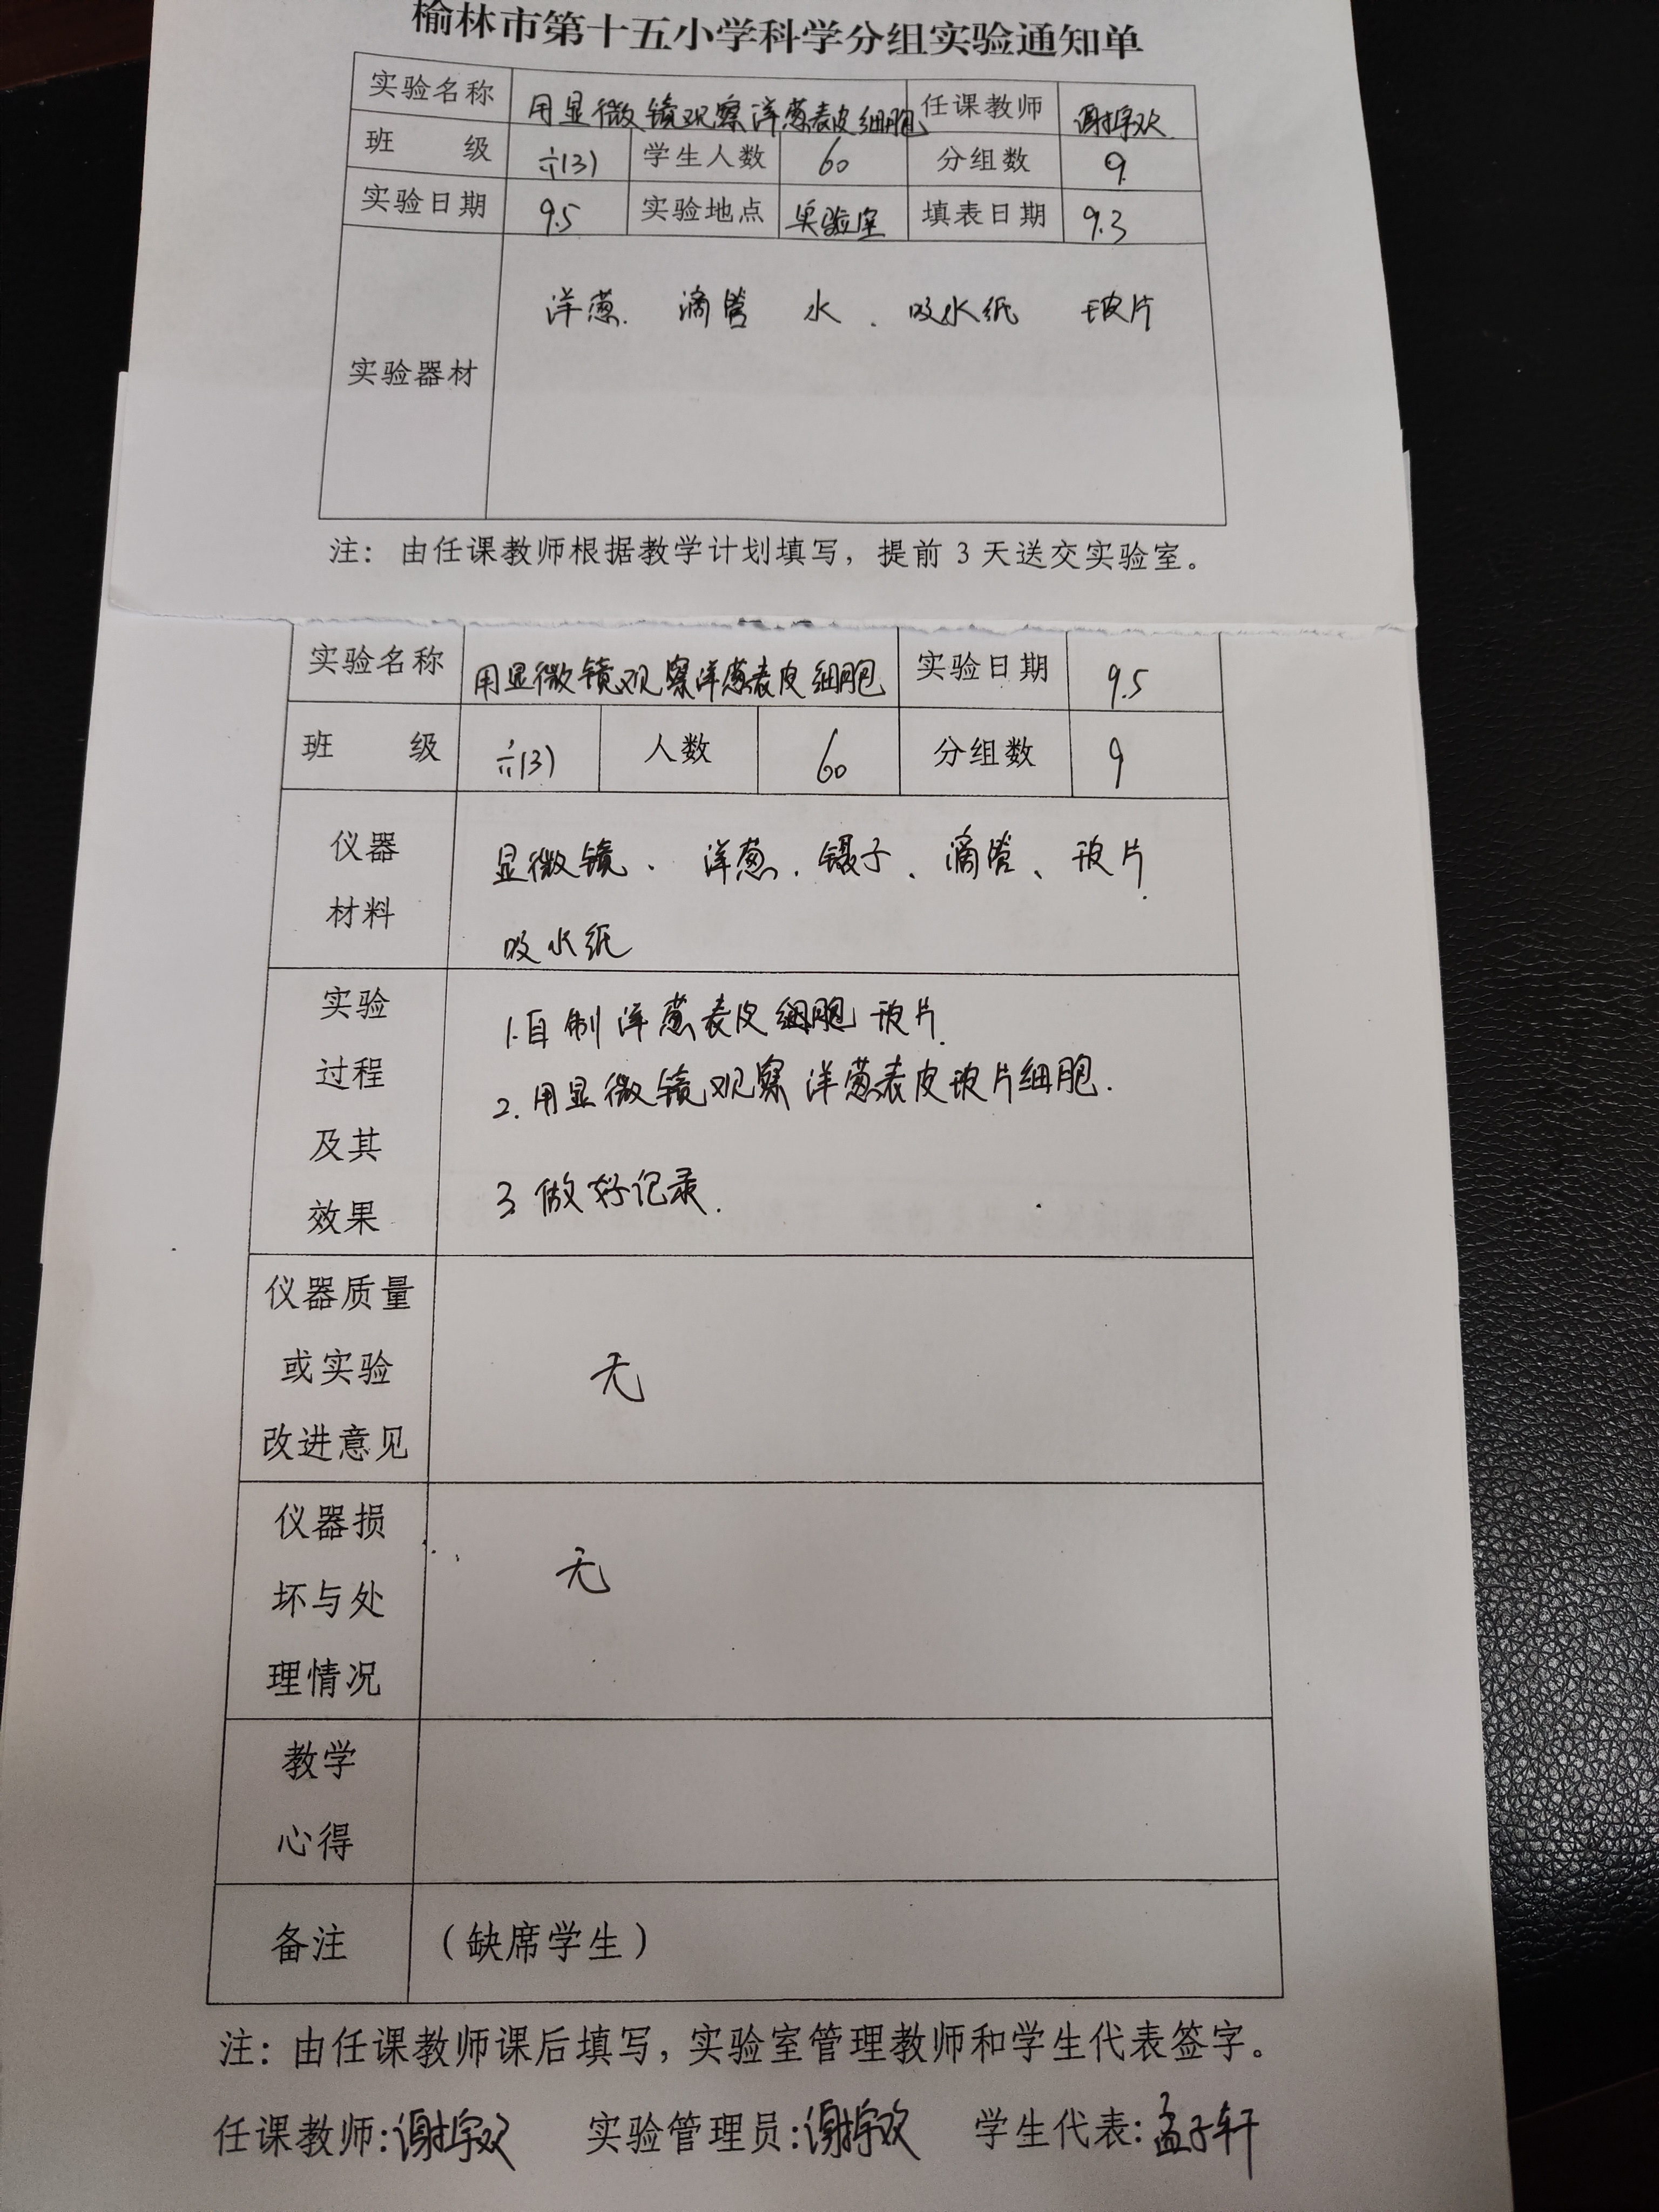 榆林市第十五小学科学分组实验通知单
实验名称 用显微镜观察洋葱表皮细胞 任课教师 谢宇欢
班 级 六(3) 学生人数 60 分组数 9
实验日期 9.5 实验地点 实验室 填表日期 9.3
实验器材 洋葱、滴管 水、吸水纸 玻片
注：由任课教师根据教学计划填写，提前3天送交实验室。
实验名称 用显微镜观察洋葱表皮细胞 实验日期 9.5
班 级 六(3) 人数 60 分组数 9
仪器 显微镜、洋葱、镊子、滴管、玻片、
材料 吸水纸
实验 1.自制洋葱表皮细胞玻片.
过程 2.用显微镜观察洋葱表皮玻片细胞.
及其
效果 3.做好记录.
仪器质量
或实验 无
改进意见
仪器损
坏与处 无
理情况
教学
心得
备注 （缺席学生）
注：由任课教师课后填写，实验室管理教师和学生代表签字。
任课教师:谢宇欢 实验管理员:谢宇欢 学生代表:孟子轩